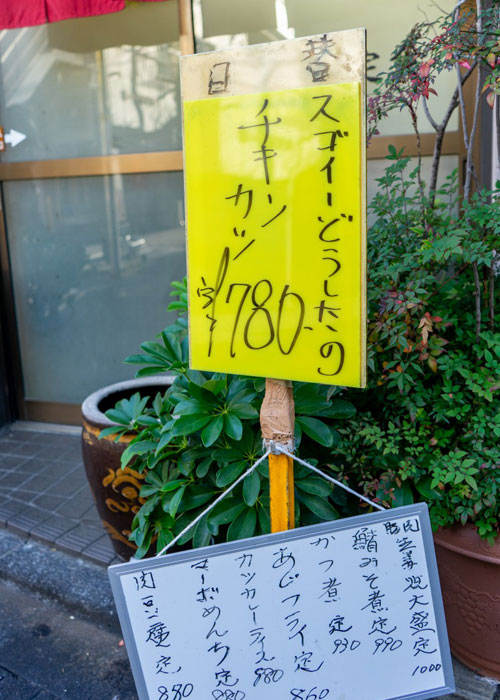 替
日
スゴイーどうしたの
チキンカツ
定
780.
肉生姜焼大盛定
1000
鯖みそ煮定
990
かつ煮定
930
あじフライ定
860
カツカレーライス
980
マーボめんち定
880
880